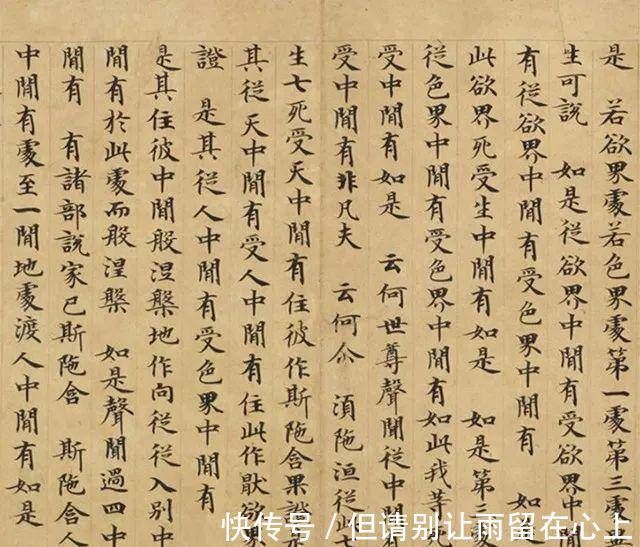 是 若欲界處若色界處第一處第三處
生可說 如是從欲界中間有受欲界中間
有從欲界中間有受色界中間有 如
此欲界死受生中間有如是 如是第三
從色界中間有受色界中間有如此我等
受中間有如是 云何世尊聲聞從中間有
受中間有非凡夫 云何尒 須陁洹從此七
生七死受天中間有住彼作斯陁含果
其從天中間有受人中間有住此作猒欲
證 是其從人中間有受色界中間有
是其住彼中間般涅槃地作向從從入別中
間有於此處而般涅槃 如是聲聞過四中
間有 有諸部說家已斯陁含 斯陁含人
中間有處至一間地處渡人中間有如是
快传号 / 但请别让雨留在心上